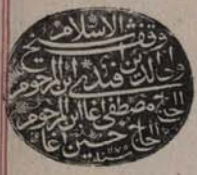 وقف شيخ الاسلام
ولي الدين افندي ابن المرحوم
الحاج مصطفى اغا ابن المرحوم
الحاج حسين اغا